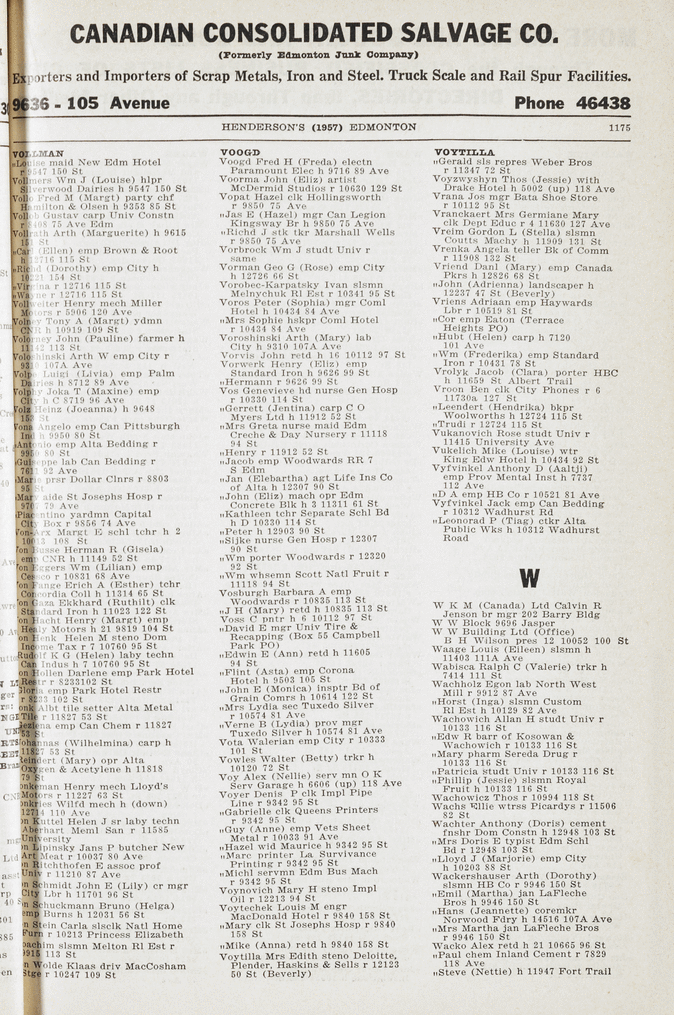 CANADIAN CONSOLIDATED SALVAGE CO.
(Formerly Edmonton Junk Company)
Exporters and Importers of Scrap Metals, Iron and Steel. Truck Scale and Rail Spur Facilities.
9636 - 105 Avenue Phone 46438
HENDERSON'S (1957) EDMONTON 1175
VOLLMAN
„Louise maid New Edm Hotel
r 9547 150 St
Vollmers Wm J (Louise) hlpr
Silverwood Dairies h 9547 150 St
Vollo Fred M (Margt) party chf
Hamilton & Olsen h 9353 85 St
Vollob Gustav carp Univ Constn
r 8408 75 Ave Edm
Vollrath Arth (Marguerite) h 9615
151 St
„Carl (Ellen) emp Brown & Root
h 12716 115 St
„Richd (Dorothy) emp City h
10221 154 St
„Virgina r 12716 115 St
„Wayne r 12716 115 St
Vollweiter Henry mech Miller
Motors r 5906 120 Ave
Volney Tony A (Margt) ydmn
CNR h 10919 109 St
Volorney John (Pauline) farmer h
11142 113 St
Voloshinski Arth W emp City r
9310 107A Ave
Volpe Luigi (Livia) emp Palm
Dairies h 8712 89 Ave
Volphy Joka T (Maxine) emp
City h C 8719 96 Ave
Volz Heinz (Joeanna) h 9648
153 St
Vona Angelo emp Can Pittsburgh
Ind h 9950 80 St
„Antonio emp Alta Bedding r
9950 80 St
„Guiseppe lab Can Bedding r
7611 92 Ave
„Mario prsr Dollar Clnrs r 8803
95 St
„Mary aide St Josephs Hosp r
9707 79 Ave
„Piacentino yardmn Capital
City Box r 9856 74 Ave
Von-Arx Margt E schl tchr h 2
10013 108 St
Von Busse Herman R (Gisela)
emp CNR h 11149 52 St
Von Eggers Wm (Lilian) emp
Cessco r 10831 68 Ave
Von Fange Erich A (Esther) tchr
Concordia Coll h 11314 65 St
Von Gaza Ekkhard (Ruthilt) clk
Standard Iron h 11023 122 St
Von Hacht Henry (Margt) emp
Healy Motors h 21 9819 104 St
Von Henk Helen M steno Dom
Income Tax r 7 10760 95 St
„Rudolf K G (Helen) laby techn
Can Indus h 7 10760 95 St
Von Hollen Darlene emp Park Hotel
Restr r 8233102 St
„Gloria emp Park Hotel Restr
r 8233 102 St
Vonk Albt tile setter Alta Metal
Tile r 11827 53 St
„Geziena emp Can Chem r 11827
53 St
„Johannas (Wilhelmina) carp h
11827 53 St
„Reindert (Mary) opr Alta
Oxygen & Acetylene h 11818
79 St
Vonkeman Henry mech Lloyd's
Motors r 11227 63 St
Vonkries Wilfd mech h (down)
12714 110 Ave
Von Kuttel Helen J sr laby techn
Aberhart Meml San r 11585
University
Von Lipinsky Jans P butcher New
Art Meat r 10037 80 Ave
Von Ritchthofen E assoc prof
Univ r 11210 87 Ave
Von Schmidt John E (Lily) cr mgr
City Lbr h 11701 96 St
Von Schuckmann Bruno (Helga)
emp Burns h 12031 56 St
Von Stein Carla slsclk Natl Home
Furn r 10213 Princess Elizabeth
„Joachim slsmn Melton Rl Est r
9915 113 St
Von Wolde Klaas driv MacCosham
Stge r 10247 109 St
VOOGD
Voogd Fred H (Freda) electn
Paramount Elec h 9716 89 Ave
Voorma John (Eliz) artist
McDermid Studios r 10630 129 St
Vopat Hazel clk Hollingsworth
r 9850 75 Ave
„Jas E (Hazel) mgr Can Legion
Kingsway Br h 9850 75 Ave
„Richd J stk tkr Marshall Wells
r 9850 75 Ave
Vorbrock Wm J studt Univ r
same
Vorman Geo G (Rose) emp City
h 12726 66 St
Vorobec-Karpatsky Ivan slsmn
Melnychuk Rl Est r 10341 95 St
Voros Peter (Sophia) mgr Coml
Hotel h 10434 84 Ave
„Mrs Sophie hskpr Coml Hotel
r 10434 84 Ave
Voroshinski Arth (Mary) lab
City h 9310 107A Ave
Vorvis John retd h 16 10112 97 St
Vorwerk Henry (Eliz) emp
Standard Iron h 9626 99 St
„Hermann r 9626 99 St
Vos Genevieve hd nurse Gen Hosp
r 10330 114 St
„Gerrett (Jentina) carp C O
Myers Ltd h 11912 52 St
„Mrs Greta nurse maid Edm
Creche & Day Nursery r 11118
94 St
„Henry r 11912 52 St
„Jacob emp Woodwards RR 7
S Edm
„Jan (Elebartha) agt Life Ins Co
of Alta h 12307 90 St
„John (Eliz) mach opr Edm
Concrete Blk h 3 11311 61 St
„Kathleen tchr Separate Schl Bd
h D 10330 114 St
„Peter h 12903 90 St
„Sijke nurse Gen Hosp r 12307
90 St
„Wm porter Woodwards r 12320
92 St
„Wm whsemn Scott Natl Fruit r
11118 94 St
Vosburgh Barbara A emp
Woodwards r 10835 113 St
„J H (Mary) retd h 10835 113 St
Voss C pntr h 6 10112 97 St
„David E mgr Univ Tire &
Recapping (Box 55 Campbell
Park PO)
„Edwin E (Ann) retd h 11605
94 St
„Flint (Asta) emp Corona
Hotel h 9503 105 St
„John E (Monica) insptr Bd of
Grain Comrs h 10614 122 St
„Mrs Lydia sec Tuxedo Silver
r 10574 81 Ave
„Verne B (Lydia) prov mgr
Tuxedo Silver h 10574 81 Ave
Vota Walerian emp City r 10333
101 St
Vowles Walter (Betty) trkr h
10120 72 St
Voy Alex (Nellie) serv mn O K
Serv Garage h 6606 (up) 118 Ave
Voyer Denis P clk Impl Pipe
Line r 9342 95 St
„Gabrielle clk Queens Printers
r 9342 95 St
„Guy (Anne) emp Vets Sheet
Metal r 10033 91 Ave
„Hazel wid Maurice h 9342 95 St
„Marc printer La Survivance
Printing r 9342 95 St
„Michl servmn Edm Bus Mach
r 9342 95 St
Voynovich Mary H steno Impl
Oil r 12213 94 St
Voytechek Louis M engr
MacDonald Hotel r 9840 158 St
„Mary clk St Josephs Hosp r 9840
158 St
„Mike (Anna) retd h 9840 158 St
Voytilla Mrs Edith steno Deloitte,
Plender, Haskins & Sells r 12123
50 St (Beverly)
VOYTILLA
„Gerald sls repres Weber Bros
r 11347 72 St
Voyzwyshyn Thos (Jessie) with
Drake Hotel h 5002 (up) 118 Ave
Vrana Jos mgr Bata Shoe Store
r 10112 95 St
Vranckaert Mrs Germiane Mary
clk Dept Educ r 4 11630 127 Ave
Vreim Gordon L (Stella) slsmn
Coutts Machy h 11909 131 St
Vrenka Angela teller Bk of Comm
r 11908 132 St
Vriend Danl (Mary) emp Canada
Pkrs h 12826 68 St
„John (Adrienna) landscaper h
12237 47 St (Beverly)
Vriens Adriaan emp Haywards
Lbr r 10519 81 St
„Cor emp Eaton (Terrace
Heights PO)
„Hubt (Helen) carp h 7120
101 Ave
„Wm (Frederika) emp Standard
Iron r 10431 78 St
Vrolyk Jacob (Clara) porter HBC
h 11659 St Albert Trail
Vroon Ben clk City Phones r 6
11730a 127 St
„Leendert (Hendrika) bkpr
Woolworths h 12724 115 St
„Trudi r 12724 115 St
Vukanovich Rose studt Univ r
11415 University Ave
Vukelich Mike (Louise) wtr
King Edw Hotel h 10434 92 St
Vyfvinkel Anthony D (Aaltji)
emp Prov Mental Inst h 7737
112 Ave
„D A emp HB Co r 10521 81 Ave
Vyfvinkel Jack emp Can Bedding
r 10312 Wadhurst Rd
„Leonorad P (Tiag) ctkr Alta
Public Wks h 10312 Wadhurst
Road
W
W K M (Canada) Ltd Calvin R
Jenson br mgr 202 Barry Bldg
W W Block 9696 Jasper
W W Building Ltd (Office)
B H Wilson pres 12 10052 100 St
Waage Louis (Eileen) slsmn h
11403 111A Ave
Wabisca Ralph C (Valerie) trkr h
7414 111 St
Wachholz Egon lab North West
Mill r 9912 87 Ave
„Horst (Inga) slsmn Custom
Rl Est h 10129 82 Ave
Wachowich Allan H studt Univ r
10133 116 St
„Edw R barr of Kosowan &
Wachowich r 10133 116 St
„Mary pharm Sereda Drug r
10133 116 St
„Patricia studt Univ r 10133 116 St
„Phillip (Jessie) slsmn Royal
Fruit h 10133 116 St
Wachowicz Thos r 10994 118 St
Wachs Ellie wtrss Picardys r 11506
82 St
Wachter Anthony (Doris) cement
fnshr Dom Constn h 12948 103 St
„Mrs Doris E typist Edm Schl
Bd r 12948 103 St
„Lloyd J (Marjorie) emp City
h 10203 88 St
Wackershauser Arth (Dorothy)
slsmn HB Co r 9946 150 St
„Emil (Martha) jan LaFleche
Bros h 9946 150 St
„Hans (Jeannette) coremkr
Norwood Fdry h 14516 107A Ave
„Mrs Martha jan LaFleche Bros
r 9946 150 St
Wacko Alex retd h 21 10665 96 St
„Paul chem Inland Cement r 7829
118 Ave
„Steve (Nettie) h 11947 Fort Trail